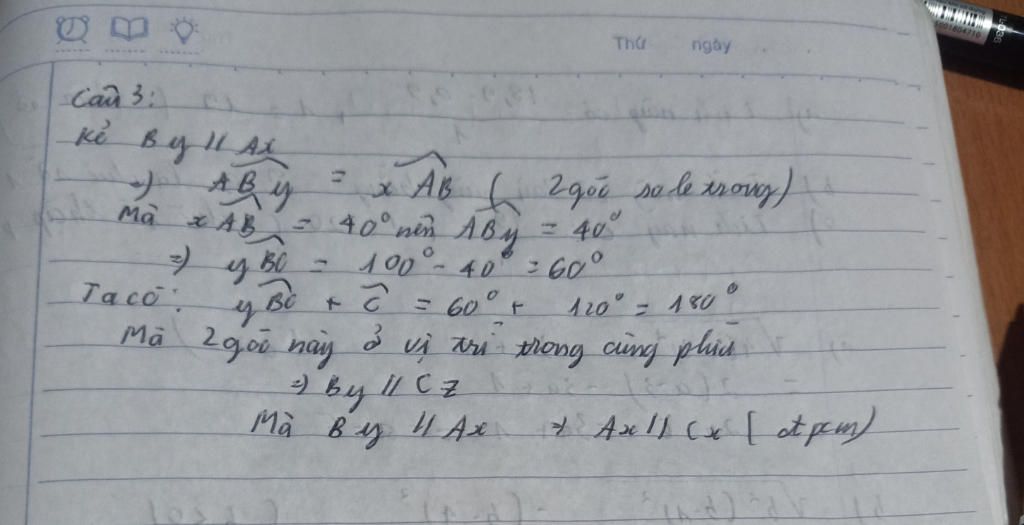 Thứ ngày
Câu 3:
Kẻ By // Ax
=> ABy = xAB ( 2 góc so le trong)
Mà xAB = 40° nên ABy = 40°
=> yBC = 100° - 40° = 60°
Ta có: yBC + C = 60° + 120° = 180°
Mà 2 góc này ở vị trí trong cùng phía
=> By // Cz
Mà By // Ax => Ax // Cx ( đpcm)